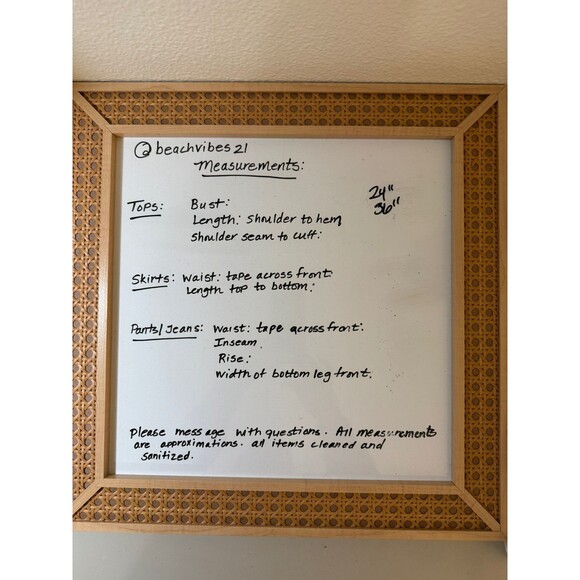 @beachvibes21
Measurements:
24"
36"
Tops: Bust:
Length: Shoulder to hem
Shoulder seam to cuff:
Skirts: Waist: tape across front
Length top to bottom:
Pants/Jeans: Waist: tape across front:
Inseam
Rise:
Width of bottom leg front.
Please message with questions. All measurements
are approximations. all items cleaned and
sanitized.